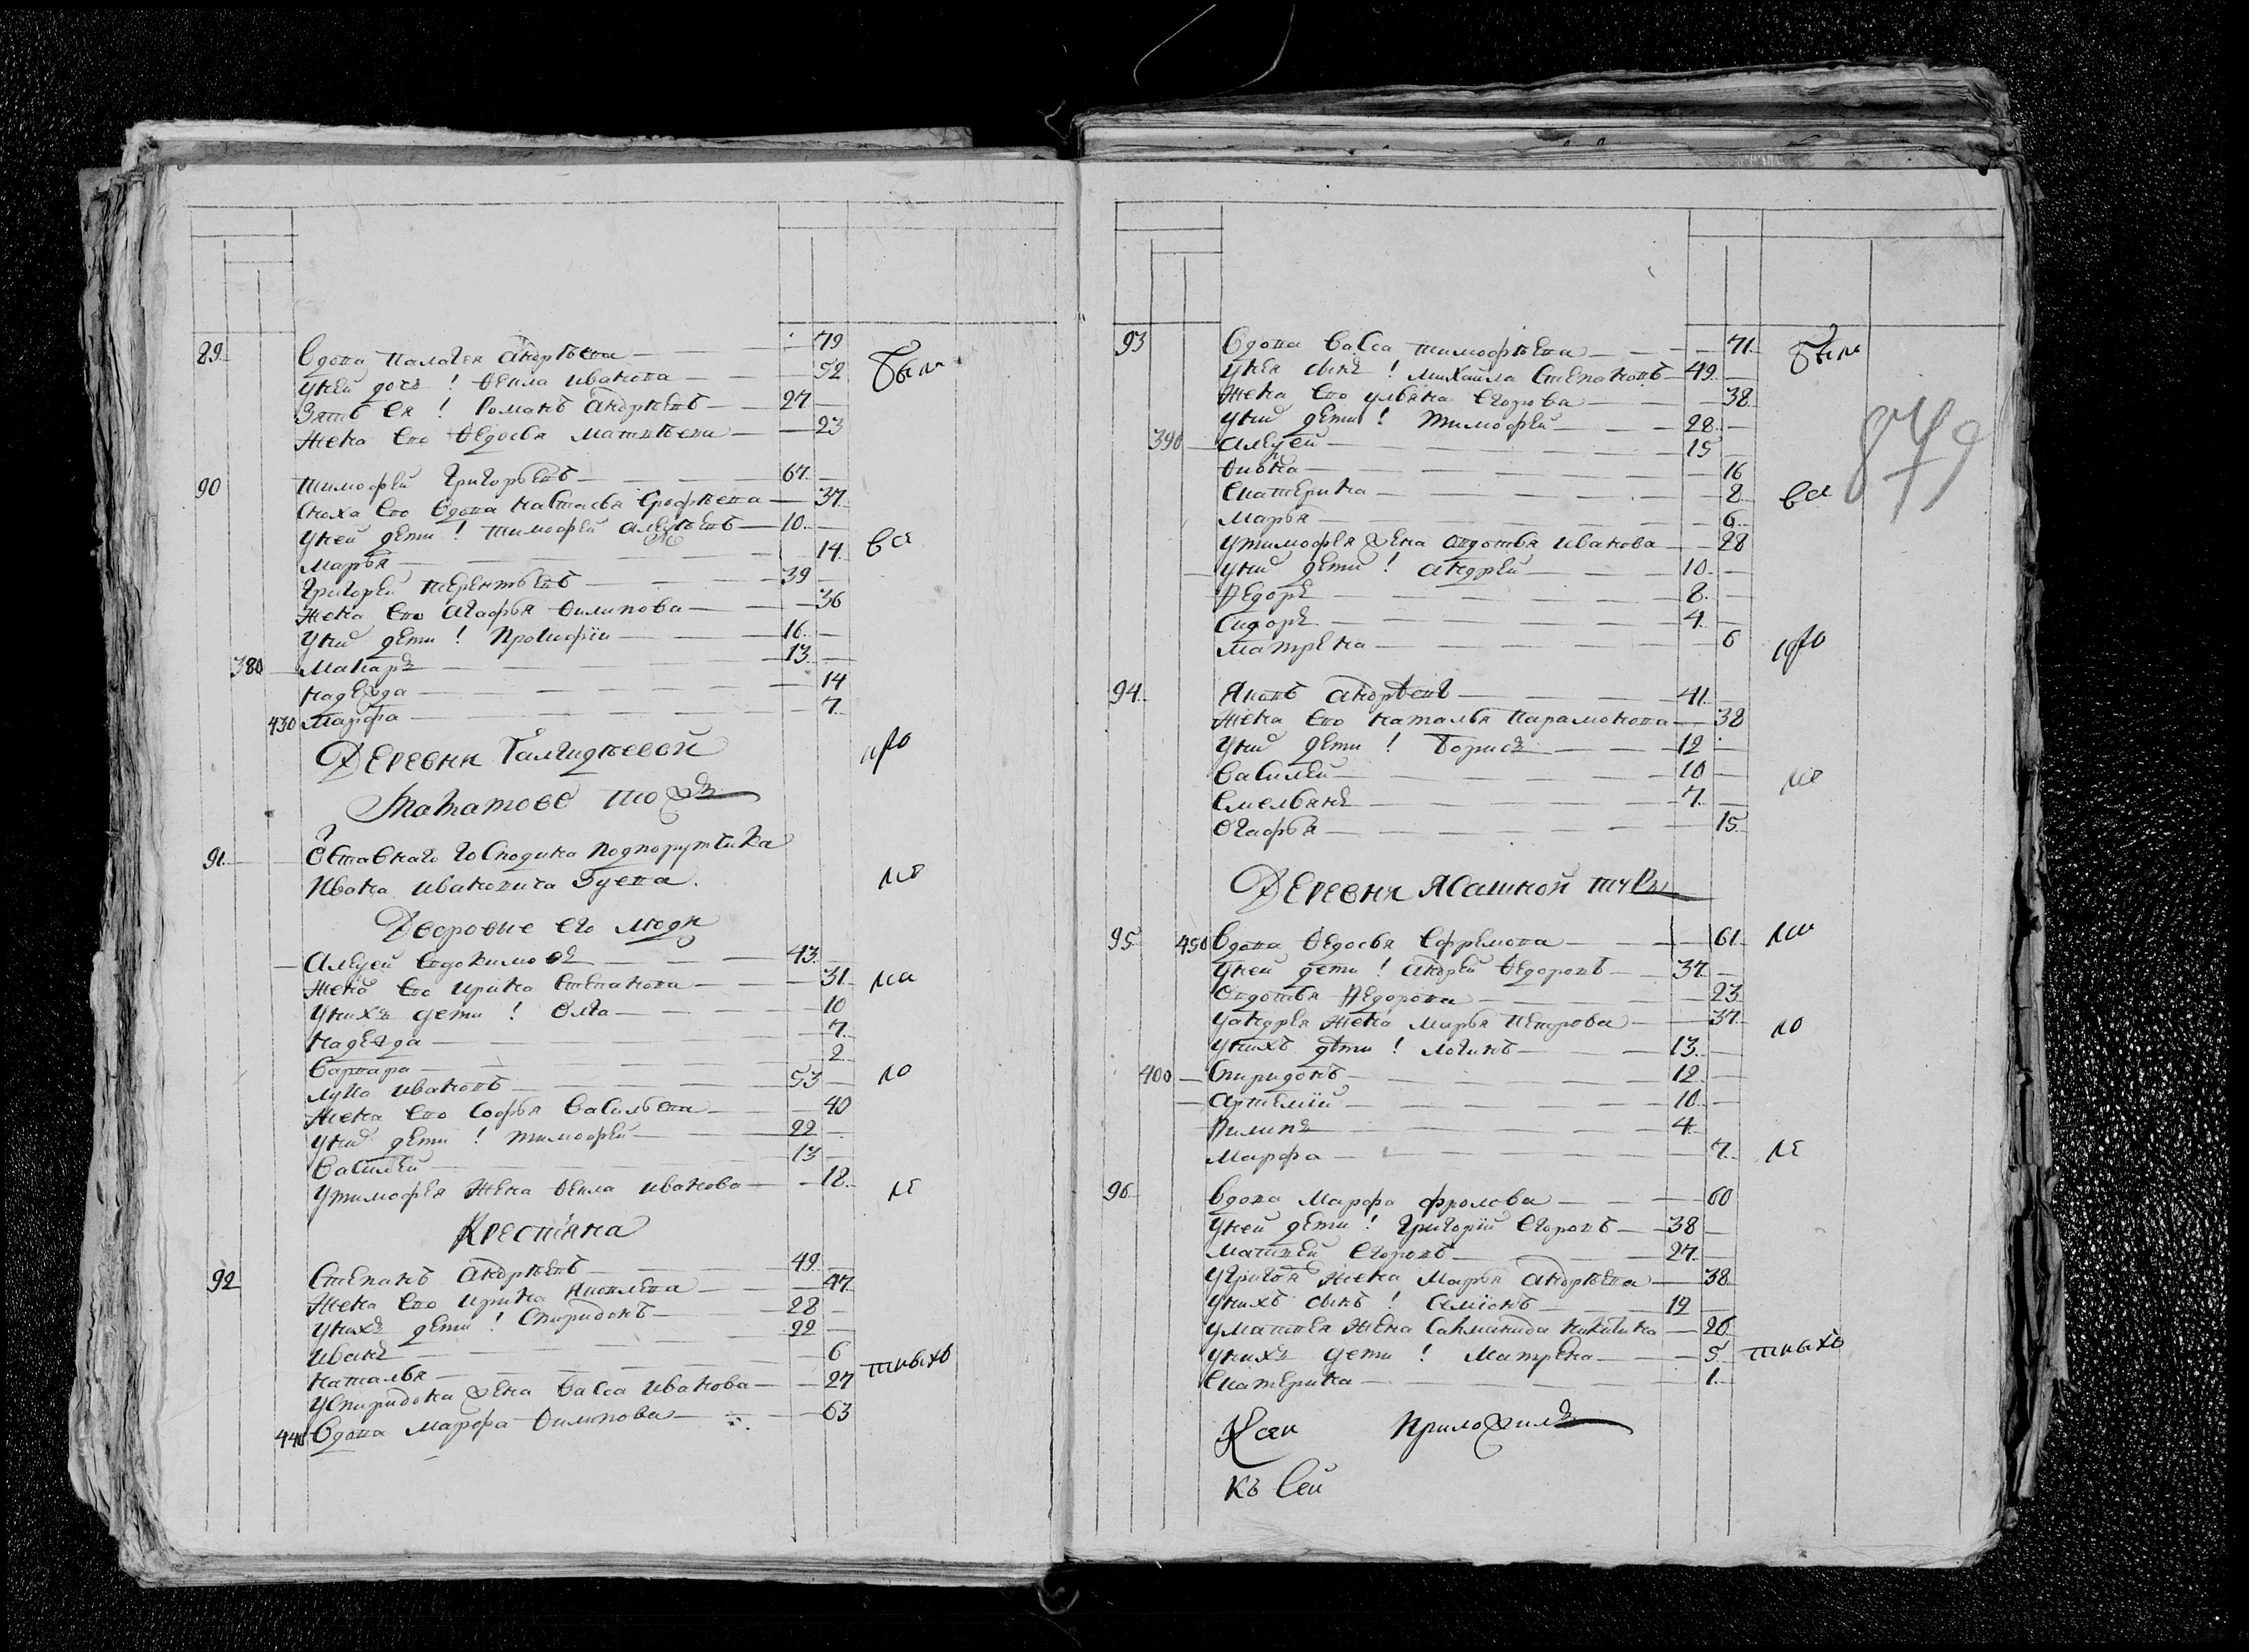 89 Вдова Палагея Андрѣева — 79
У ней дочь ! Фекла Иванова — 52 были
Зять Ея ! Романъ Андрѣевъ — 27
Жена Ево Федосья Матвѣева — 23
90 Тимофей Григорьевъ — 67
Сноха Ево Вдова Настасья Ерофѣева — 37
У ней дети ! Тимофей Алексѣевъ — 10 вси
Марья — 14
Григорей Терентьевъ — 39
Жена Ево Агафья Филипова — 36
У них дети ! Прокофiи — 16
380 Макаръ — 13
Надежда — 14
430 Марфа — 7
Деревни
Тожъ
91 Отставнаго Господина Подпорутчика
Ивана Ивановича Гуева.
Дворовые его люди
Алексей Евдокимовъ — 43
Жена Ево Ирина Степанова — 31
У нихъ дети ! Олга — 10
Надежда — 7
Варвара — 2
Лупа Ивановъ — 53
Жена Ево Софья Васильева — 40
У них дети ! Тимофей — 22
Василей — 13
У Тимофея Жена Фекла Иванова — 18
Крестьяна
92 Степанъ Андрѣевъ — 49
Жена Ево Ирина Яковлева — 47
У нихъ дети ! Спиридонъ — 28
Иванъ — 22
Наталья — 6
У Спиридона жена Васса Иванова — 27
440 Вдова Марфа Филипова — 63
879
93 Вдова Васса Тимофѣева — 71 были
У нея сынъ ! Михайла Степановъ — 49
Жена Ево Ульяна Егорова — 38
У них дети ! Тимофей — 28
390 Алексей — 15
Фиона — 16
Екатерина — 8 вси
Марья — 6
У Тимофея жена Авдотья Иванова — 28
У них дети ! Андрей — 10
Федоръ — 8
Сидоръ — 4
Матрена — 6
94 Яковъ Андрѣевъ — 41
Жена Ево Наталья Парамонова — 38
У них дети ! Борисъ — 12
Василей — 10
Емельянъ — 7
Огафья — 15
Деревни Ясашной
95 450 Вдова Федосья Ефремова — 61
У ней дети ! Андрей Федоровъ — 37
Овдотья Федорова — 23
У Андрея Жена Марья Петрова — 37
У нихъ дѣти ! Логинъ — 13
400 Спиридонъ — 12
Артемiй — 10
Филипъ — 4
Марфа — 7
96 Вдова Марфа Фролова — 60
У ней дети ! Григорiй Егоровъ — 38
Матвей Егоровъ — 27
У Григоя Жена Марья Андрѣева — 38
У нихъ сынъ ! Семiонъ — 12
У Матвея Жена Никитина — 26
У нихъ дети ! Матрена — 5
Екатерина — 1
Приложилъ
Къ Сей